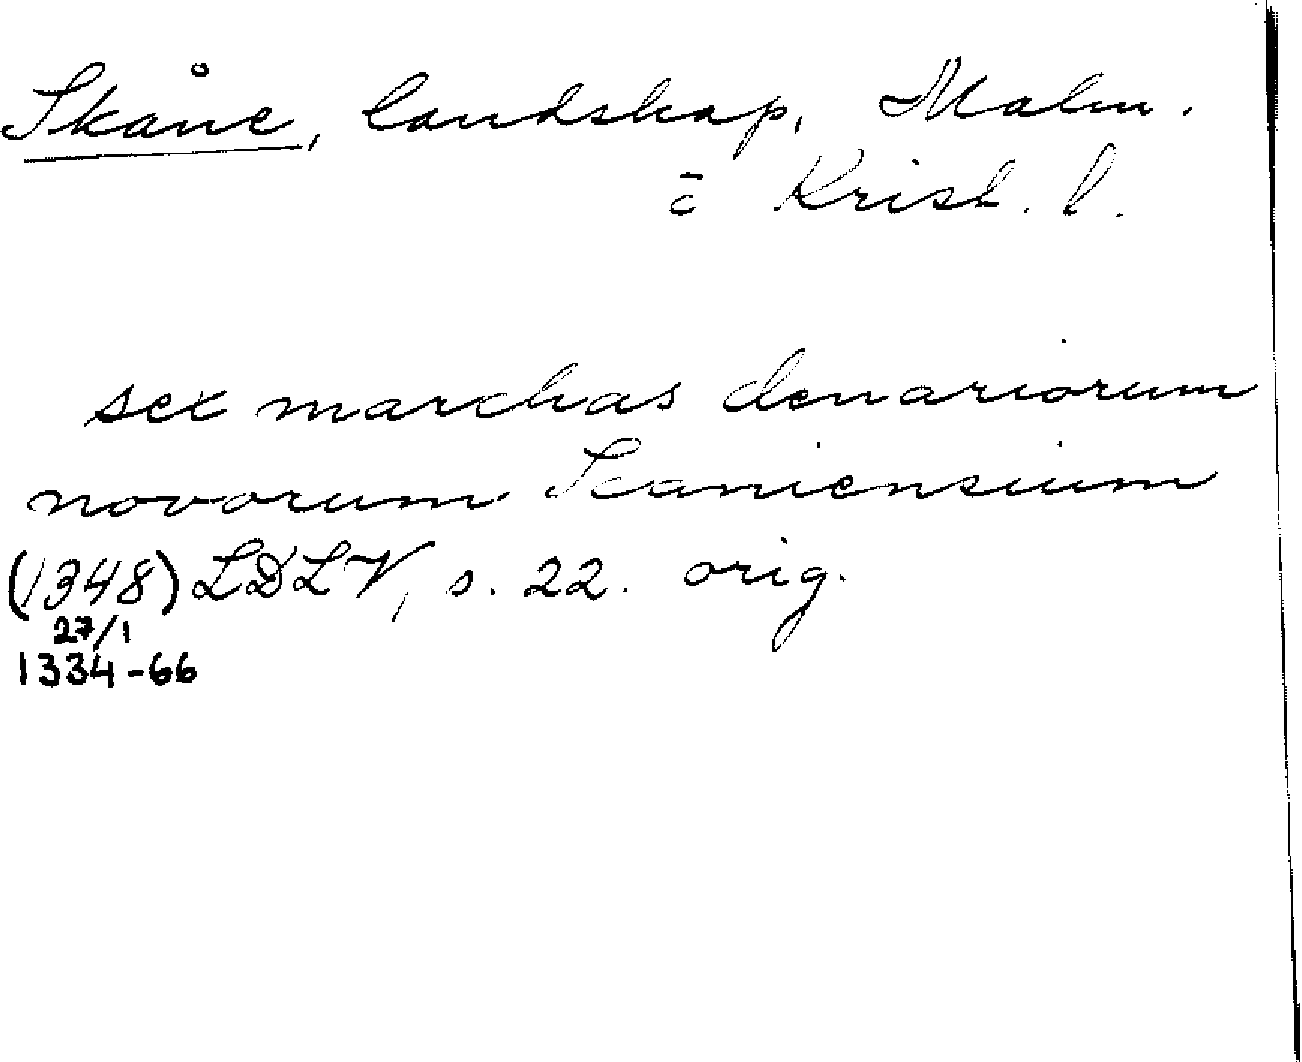 Skåne, landskap, Malm.
c̄ Krist. l.
sex marchas denariorum
novorum Scaniensium
(1348) LDLV, s. 22. orig.
27/1
1334-66